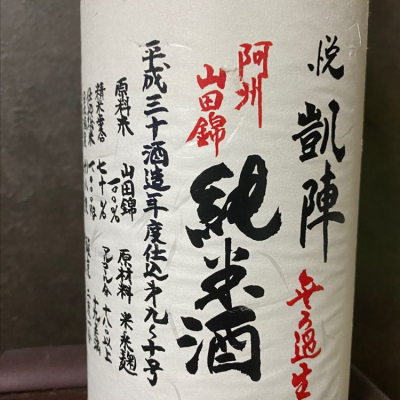 悦凱陣
無ろ過生
阿州
山田錦
純米酒
平成三十酒造年度仕込第九〜十号
原料米 山田錦 一〇〇%
原材料 米 米麹
精米歩合 七十%
アルコール分 十八以上